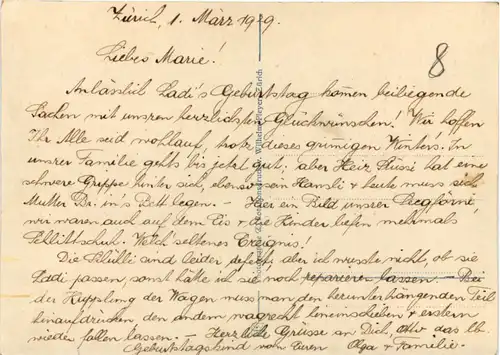 Zürich, 1. März 1929.
8
Liebes Marie!
Anlässlich Ladi's Geburtstag kommen beiliegende
Sachen mit unsren herzlichsten Glückwünschen! Wir hoffen
Ihr Alle seid wohlauf, trotz dieses grimigen Winters. In
unsrer Familie gehts bis jetzt gut; aber Heir Flüssi hat eine
schwere Grippe hinter sich, ebenso sein Hansli & heute muss sich
Mutter Dr. ins Bett legen. – Hier ein Bild unsrer
wir waren auch auf dem Eis & die Kinder liefen mehrmals
Schlittschuh. Welch seltenes Ereignis!
Die sind leider defect aber ich wusste nicht, ob sie
Ladi passen, sonst hätte ich sie noch reparieren lassen. – Bei
der Kupplung der Wagen muss man den herunterhangenden Teil
hinaufdrücken den andern wagrecht hineinschieben & erstern
wieder fallen lassen. – Herzliche Grüsse an Dich, Otto das lb.
Geburtstagskind von Euren Olga & Familie.
Wilhelm Pleyer, Zürich